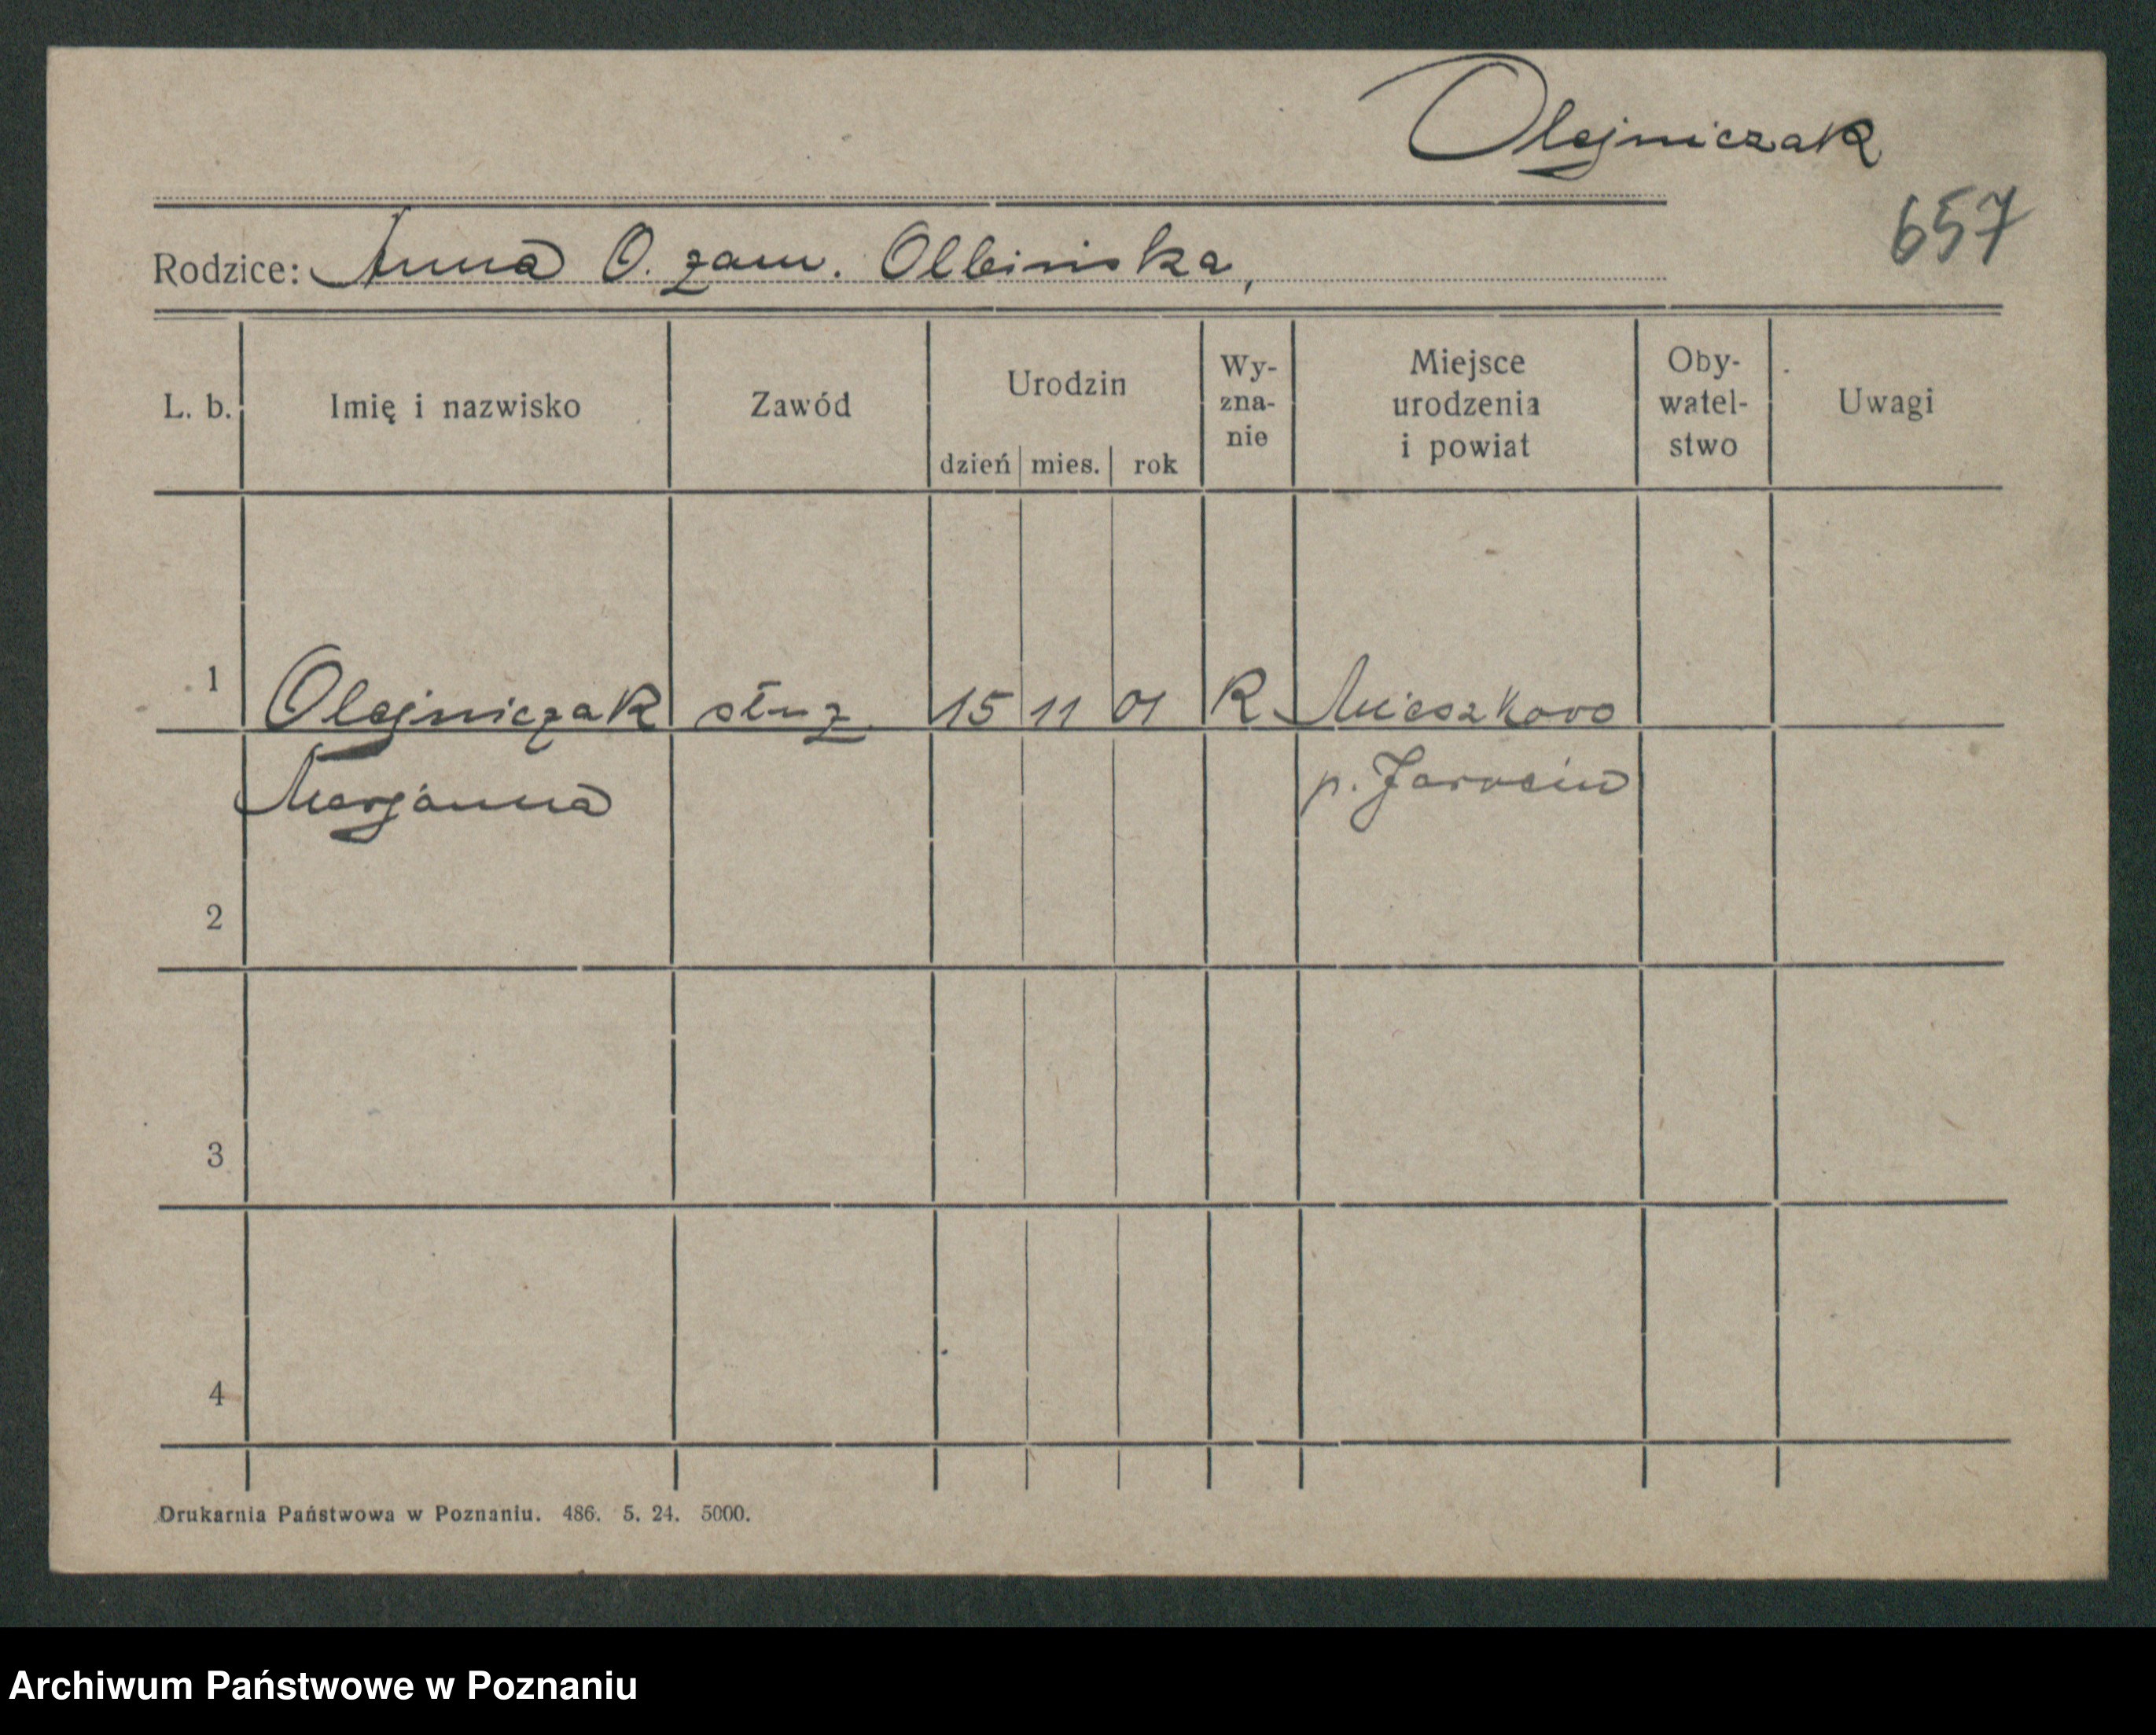 Olejniczak
657
Rodzice: Anna O. zam. Olbińska,
L. b. Imię i nazwisko Zawód Urodzin dzień mies. rok Wy-zna-nie Miejsce urodzenia i powiat Oby-watel-stwo Uwagi
1 Olejniczak służ. 15 11 01 R Mieszkowo
Marjanna p. Jarocin
2
3
4
Drukarnia Państwowa w Poznaniu. 486. 5. 24. 5000.
Archiwum Państwowe w Poznaniu